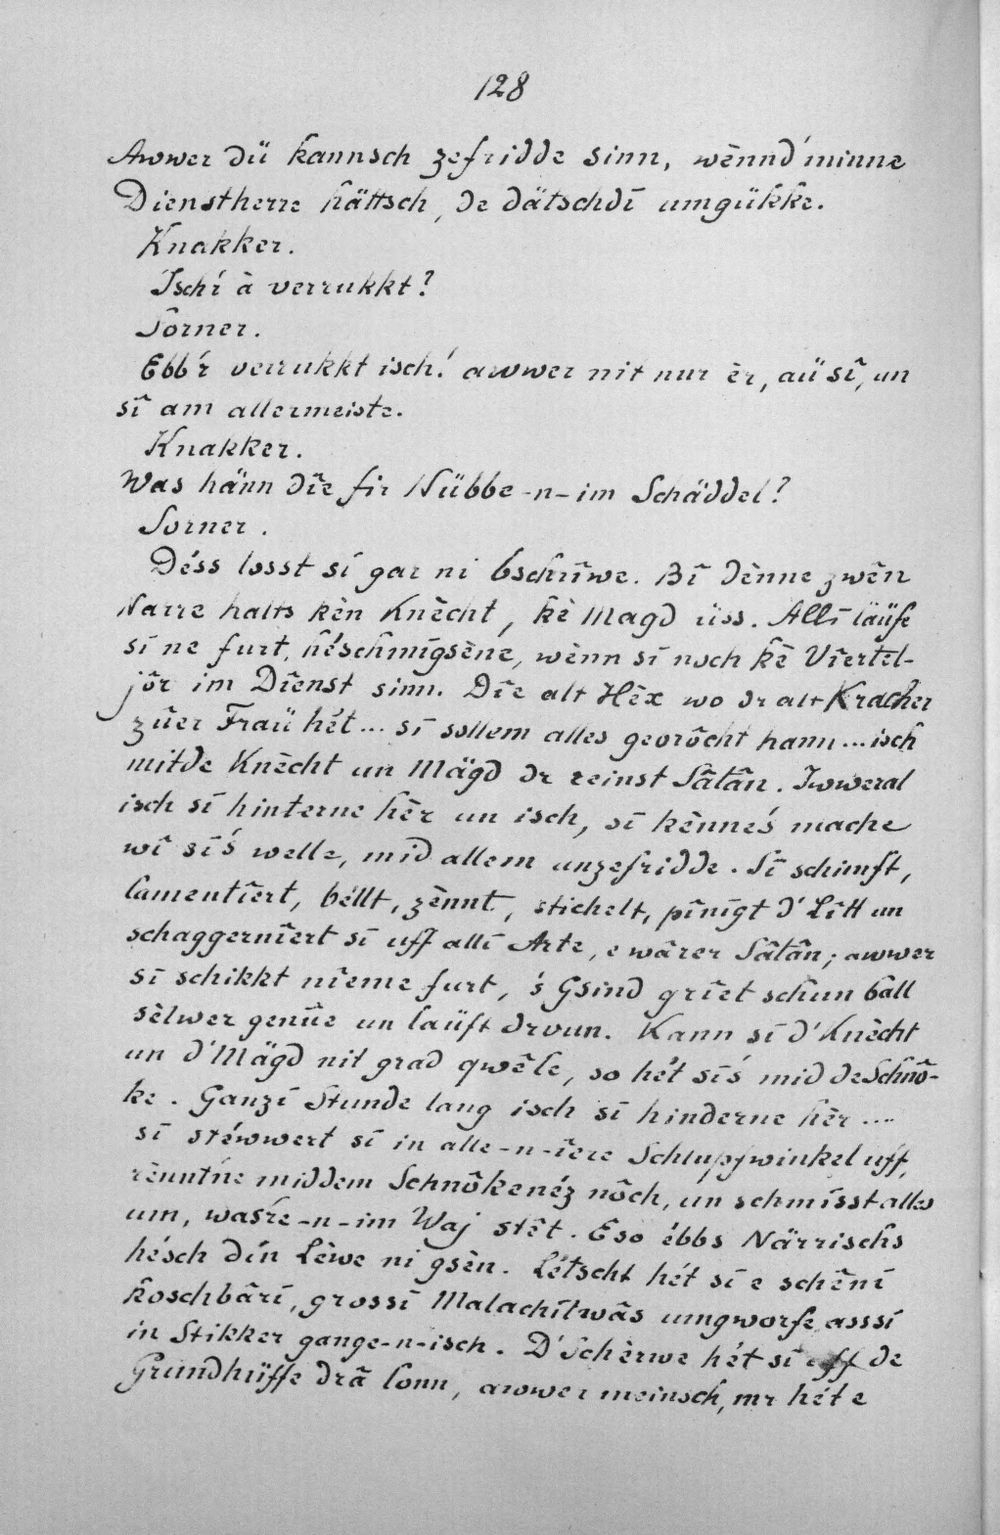 128
Awwer dü kannsch zefridde sinn, wènnd' minne
Dienstherre hättsch, de dätschdī umgükke.
Knakker.
Ischí à verrukkt?
Sorner.
Ebb'r verrukkt isch! awwer nit nur èr, aü sî, un
sî am allermeiste.
Knakker.
Was hänn dîe fir Nübbe-n-im Schäddel?
Sorner.
Déss losst sí gar ni bschrîwe. Bî dènne zwên
Narre halts kèn Knècht, kè Magd üss. Allī läüfe
sí ne furt, héschmīgsène, wènn sī noch kè Viertel-
jôr im Dîenst sinn. Dîe alt Hèx wo dr alt Kracher
zûer Fraü hét... sī sollem alles georôcht hann... isch
mitde Knècht un Mägd dr reinst Sâtân. Iwweral
isch sī hinterne hèr un isch, sī kènne's mache
wî sī's welle, mid allem unzefridde. Sī schimft,
lamentîert, béllt, zènnt, stichelt, pînīgt d' Litt un
schaggernîert sī uff allī Arte, e wârer Sâtân; awwer
sī schikkt nîeme furt, 's Gsind grîet schun ball
sèlwer genûe un laüft drvun. Kann sī d' Knècht
un d' Mägd nit grad qwêle, so hét sī's mid de Schnô-
ke. Ganzī Stunde lang isch sī hinderne hèr....
sī stéwwert sī in alle-n-îere Schlupfwinkel uff,
rènntne middem Schnôkenéz nôch, un schmīsst alles
um, wasre-n-im Waj stêt. Eso ébbs Närrischs
hésch dín Lèwe ni gsèn. Létscht hét sī e schênī
koschbârī, grossī Malachîtwâs umgworfe, asssí
in Stikker gange-n-isch. D' Schèrwe hét sī uff de
Grundhüffe drâ lonn, awwer meinsch, mr hét e